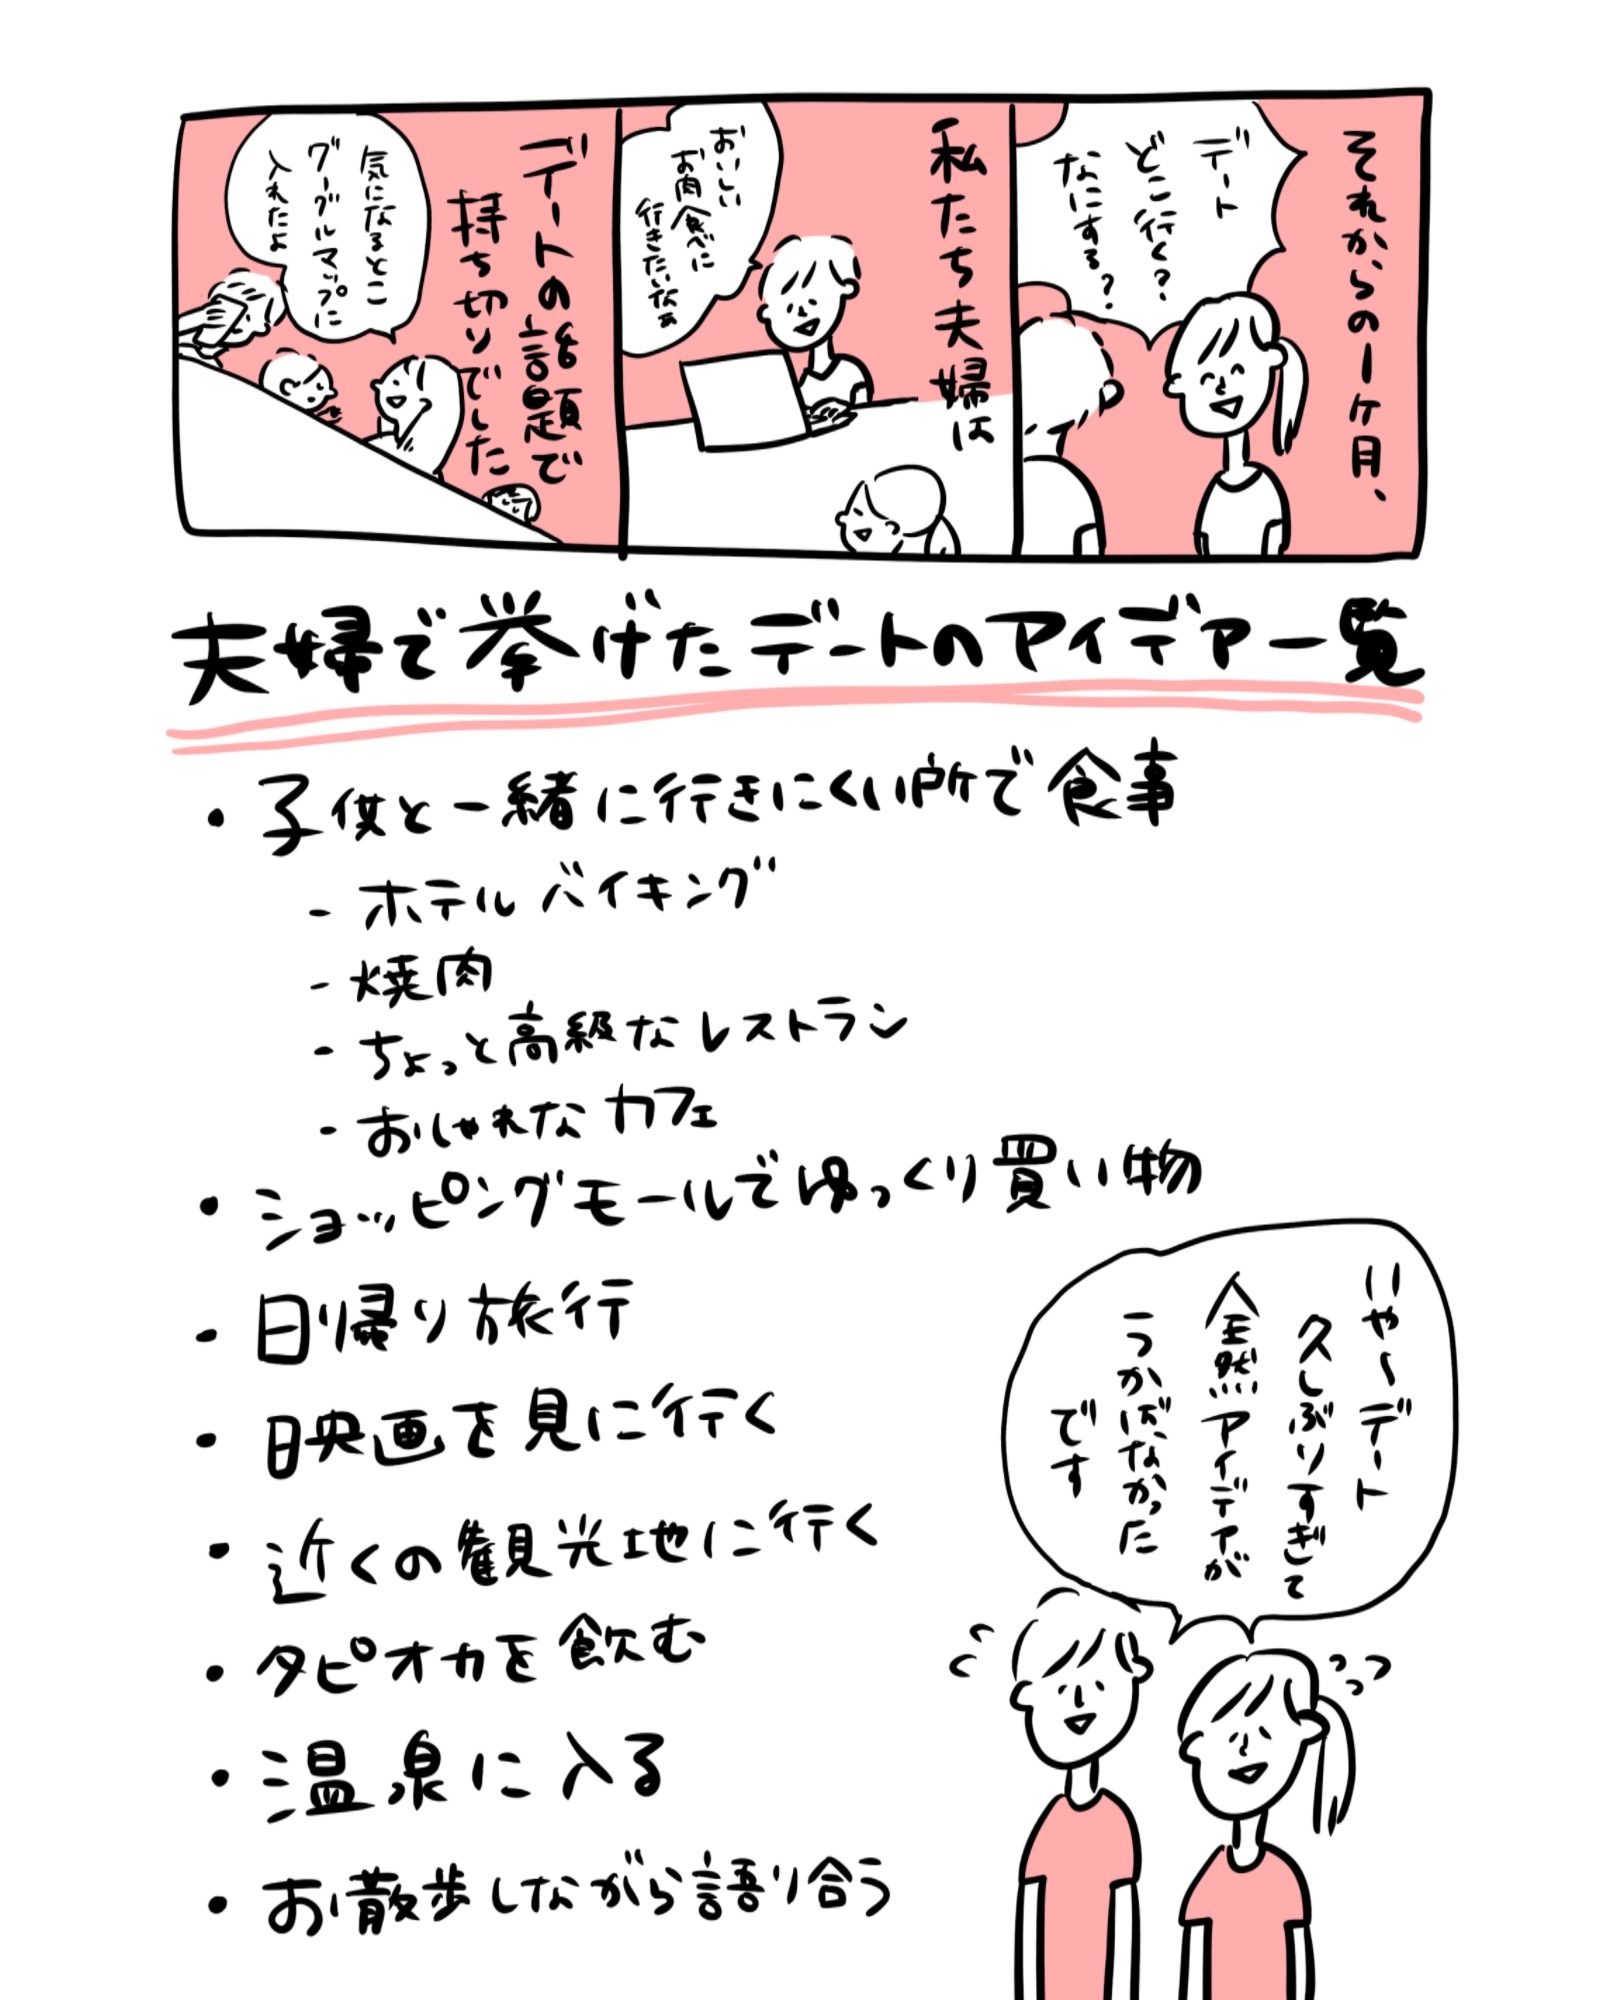 それからの1ケ月、
デート
どこ行く?
なにする?
私たち夫婦は
おいしい
お肉食べに
行きたいなぁ
デートの話題で
持ち切りでした
気になるとこ
グーグルマップに
入れたよ
夫婦で挙げたデートのアイデア一覧
・子供と一緒に行きにくい所で食事
- ホテルバイキング
- 焼肉
- ちょっと高級なレストラン
- おしゃれなカフェ
・ショッピングモールでゆっくり買い物
・日帰り旅行
・映画を見に行く
・近くの観光地に行く
・タピオカを飲む
・温泉に入る
・お散歩しながら語り合う
いや〜デート
久しぶりすぎて
全然アイデアが
うかばなかった
です